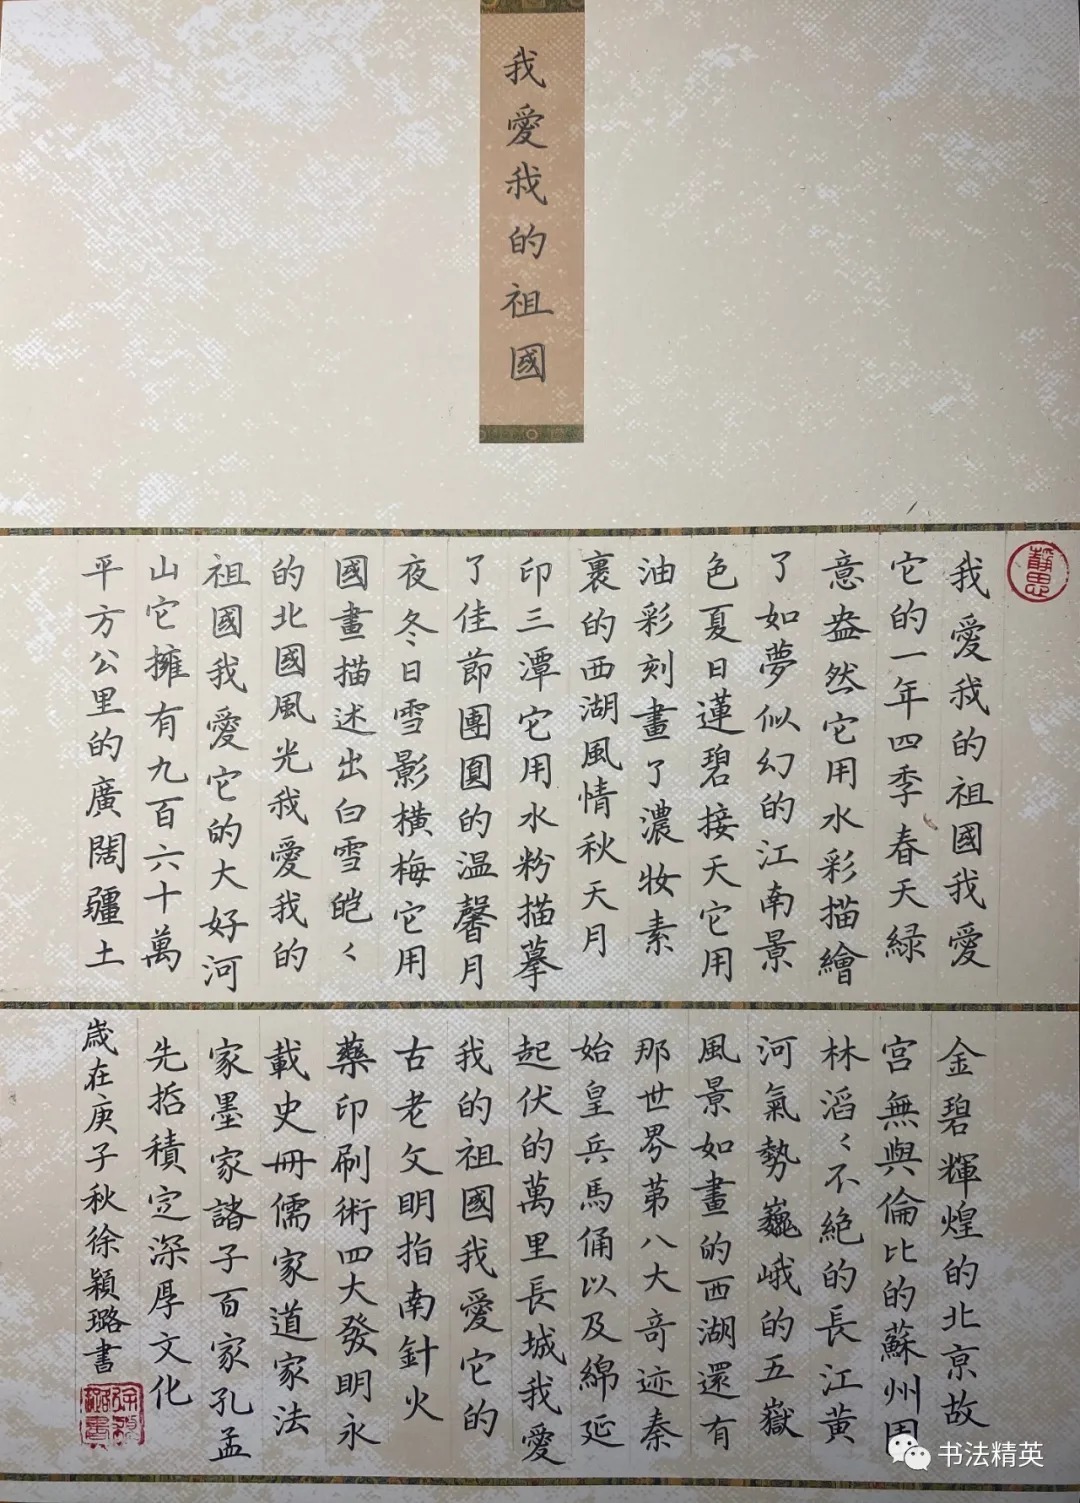 我愛我的祖國
靜思
我愛我的祖國我愛
它的一年四季春天緑
意盎然它用水彩描繪
了如夢似幻的江南景
色夏日蓮碧接天它用
油彩刻畫了濃妝素
裹的西湖風情秋天月
印三潭它用水粉描摹
了佳節團圓的温馨月
夜冬日雪影橫梅它用
國畫描述出白雪皑々
的北國風光我愛我的
祖國我愛它的大好河
山它擁有九百六十萬
平方公里的廣闊疆土
金碧輝煌的北京故
宫無與倫比的蘇州園
林滔々不絶的長江黄
河氣勢巍峨的五嶽
風景如畫的西湖還有
那世界第八大奇迹秦
始皇兵馬俑以及綿延
起伏的萬里長城我愛
我的祖國我愛它的
古老文明指南針火
藥印刷術四大發明永
載史冊儒家道家法
家墨家諸子百家孔孟
先哲積定深厚文化
歲在庚子秋徐穎璐書
书法精英